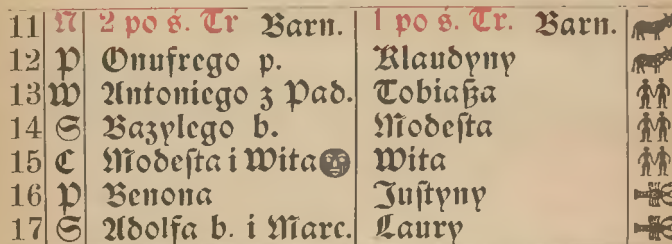 11 N 2 po ś. Tr Barn. 1 po ś. Tr. Barn.
12 P Onufrego p. Klaudyny
13 W Antoniego z Pad. Tobiaßa
14 S Bazylego b. Modeſta
15 C Modeſta i Wita Wita
16 P Benona Juſtyny
17 S Adolfa b. i Marc. Laury